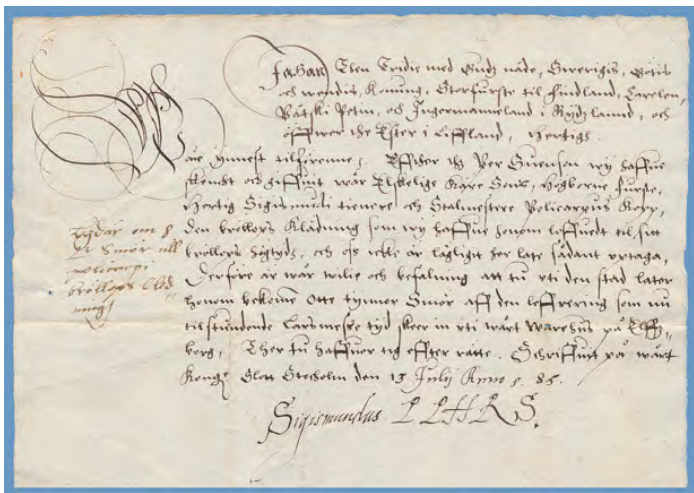 Johan Then Tridie med Gudz nåde, Swerigis, Götis
och Wendis, Konung, Storfurste til Findland, Carelen,
Petin, och Ingermanneland i Rydzlannd, och
öffwer the Ester i Liffland, Hertig
Wår ynnest tilförenne, Effther thz Per Suenson wy haffue
skencht och giffuit wår Elskelige käre Sons, Högborne Furste,
Hertig Sigismundi tienere och Stalmestere Policarpus
den bröllops Klädning som wy haffue honom loffuedt til sitt
bröllops högtydh, och oss icke är lägligit her late sådant vxtaga,
Derföre är wår wilie och befalning att tu vti den stad later
honom bekome Otte tynnor Smör aff den leffrering som nu
tilstundende Larsmesse tydh skeer in vti wårt warehus på Elffz-
borg, Ther tu haffuer tig effter rätte. Schriffuit på wårt
Kong. Slott Stocholm den 13 Julij Anno 85.
om 8
Smör till
policarpi
bröllops Cled-
ning
Sigismundus